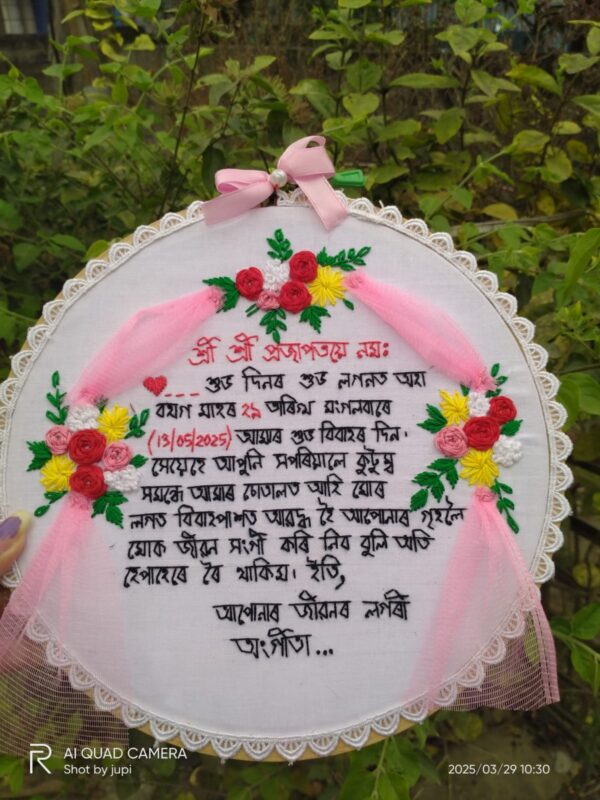 শ্ৰী শ্ৰী প্ৰজাপতয়ে নমঃ
শুভ দিনৰ শুভ লগনত অহা
বহাগ মাহৰ ২৯ তাৰিখ মংগলবাৰে
(13/05/2025) আমাৰ শুভ বিবাহৰ দিন।
সেয়েহে আপুনি সপৰিয়ালে কুটুম্ব
সমন্ধে আমাৰ চোতালত আহি মোৰ
লগত বিবাহপাশত আৱদ্ধ হৈ আপোনাৰ গৃহলৈ
মোক জীৱন সংগী কৰি নিব বুলি অতি
হেপাহেৰে ৰৈ থাকিম। ইতি,
আপোনাৰ জীৱনৰ লগৰী
অংগীতা...
R
AI QUAD CAMERA
Shot by jupi
2025/03/29 10:30